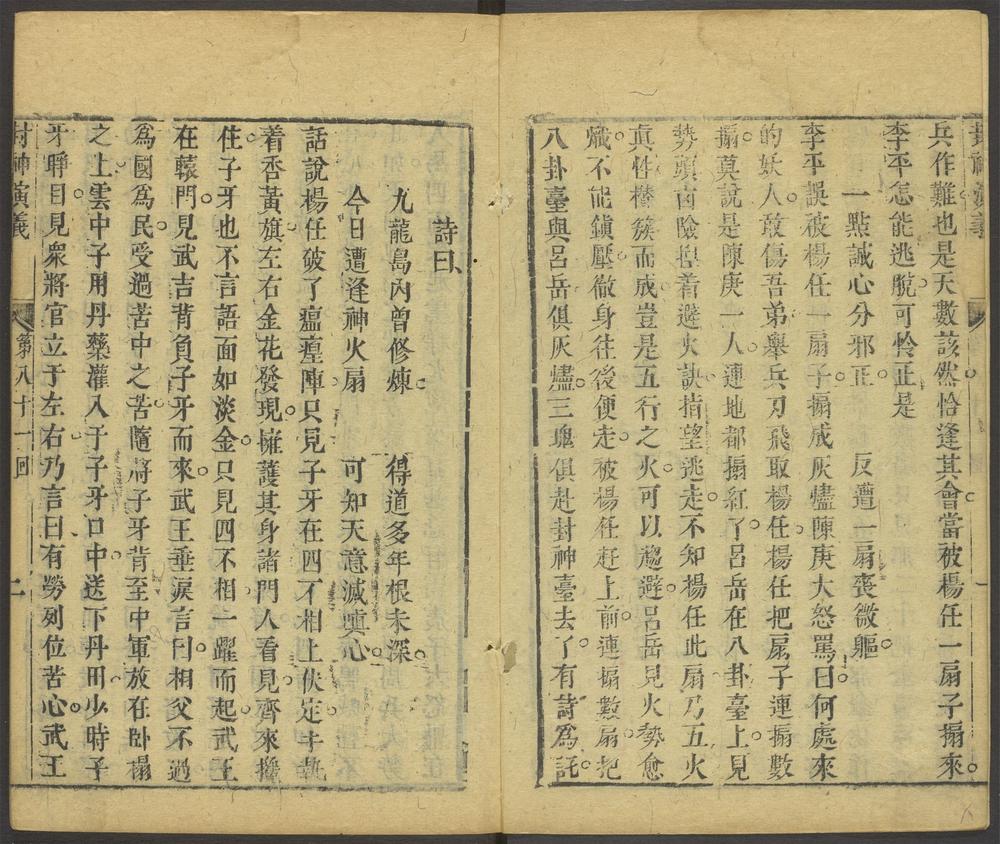 封神演義
兵作難也是天數該然恰逢其會當被楊任一扇子搧來
李平怎能逃脫可怜正是
一點誠心分邪正 反遭一扇喪微軀
李平誤被楊任一扇子搧成灰燼陳庚大怒罵曰何處來
的妖人敢傷吾弟舉兵刃飛取楊任楊任把扇子連搧數
搧莫說是陳庚一人連地都搧紅了呂岳在八卦臺上見
勢頭兇險捏着避火訣指望逃走不知楊任此扇乃五火
真性攢簇而成豈是五行之火可以趨避呂岳見火勢愈
熾不能鎮壓徹身往後便走被楊任赶上前連搧數扇把
八卦臺與呂岳俱灰燼三魂俱赴封神臺去了有詩為証
詩曰
九龍島內曾修煉 得道多年根未深
今日遭逢神火扇 可知天意滅嗔心
話說楊任破了瘟㾮陣只見子牙在四不相上伏定手執
着杏黃旗左右金花發現擁護其身諸門人看見齊來攙
住子牙也不言語面如淡金只見四不相一躍而起武王
在轅門見武吉背負子牙而來武王垂淚言曰相父不過
為國為民受過苦中之苦隨將子牙背至中軍放在臥榻
之上雲中子用丹藥灌入于子牙口中送下丹田少時子
牙睜目見衆將官立于左右乃言曰有勞列位苦心武王
封神演義 第八十一回 二